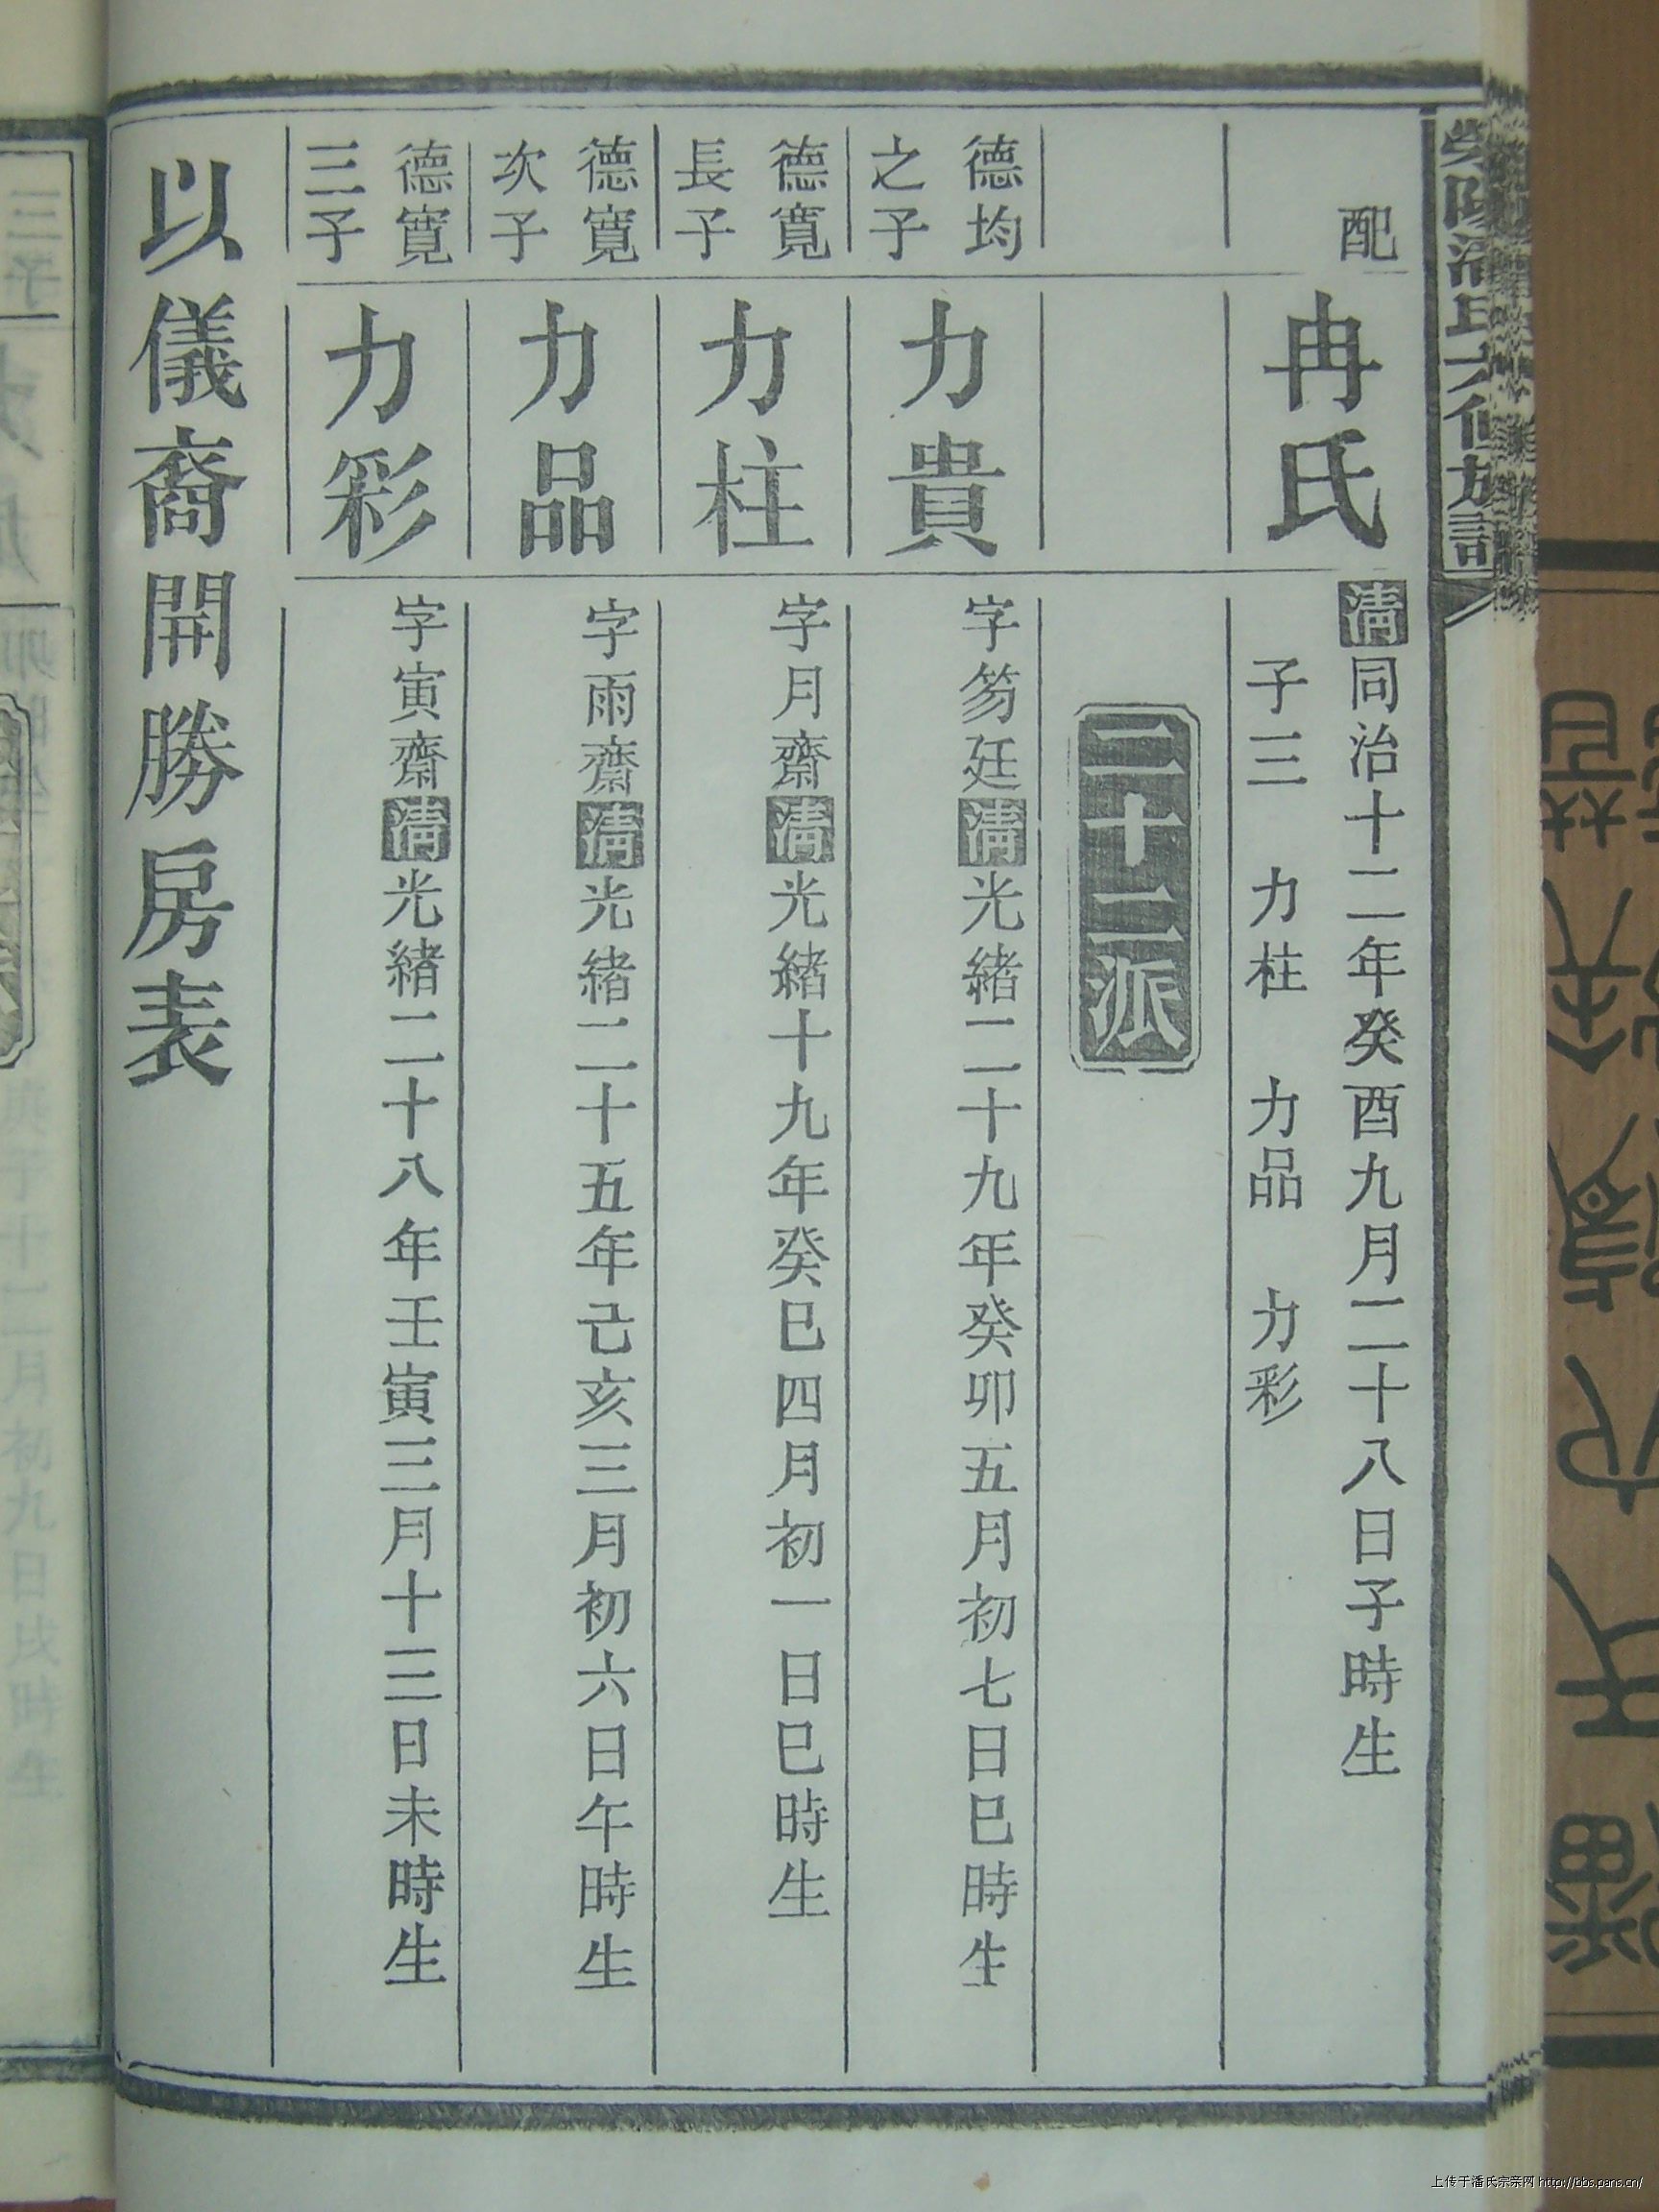 配 冉氏 清同治十二年癸酉九月二十八日子時生
子三 力柱 力品 力彩
二十二派
德均之子 力貴 字笏廷清光緒二十九年癸卯五月初七日巳時生
德寬長子 力柱 字月齋清光緒十九年癸巳四月初一日巳時生
德寬次子 力品 字雨齋清光緒二十五年己亥三月初六日午時生
德寬三子 力彩 字寅齋清光緒二十八年壬寅三月十三日未時生
以儀裔開勝房表
三子
月初九日戌時生
上传于潘氏宗亲网 http://bbs.pans.cn/